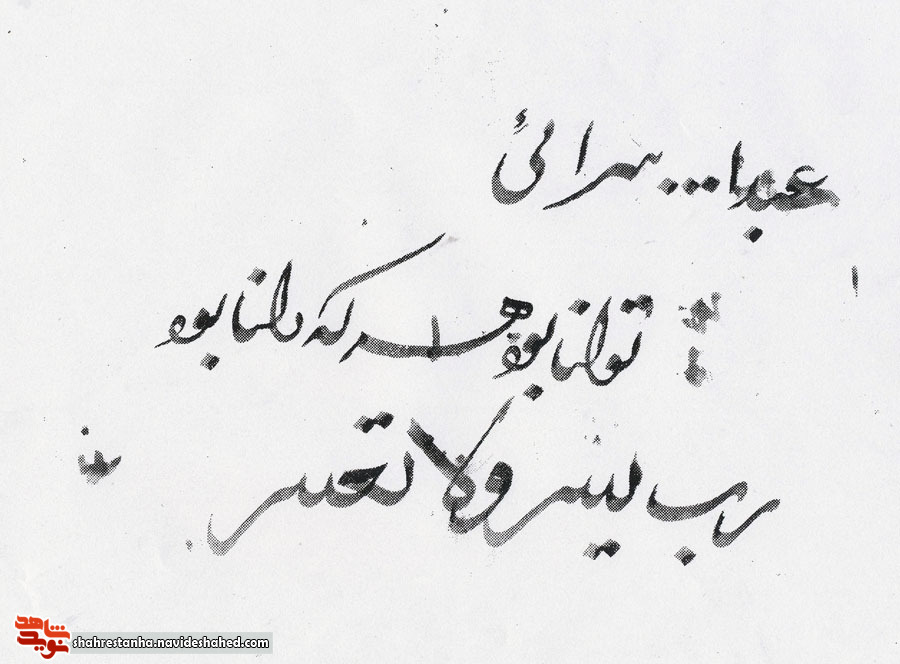 عبدا... سرائی
توانا بود هر که دانا بود
رب یسر ولا تعسر
شاهد
نوید
shahrestanha.navideshahed.com